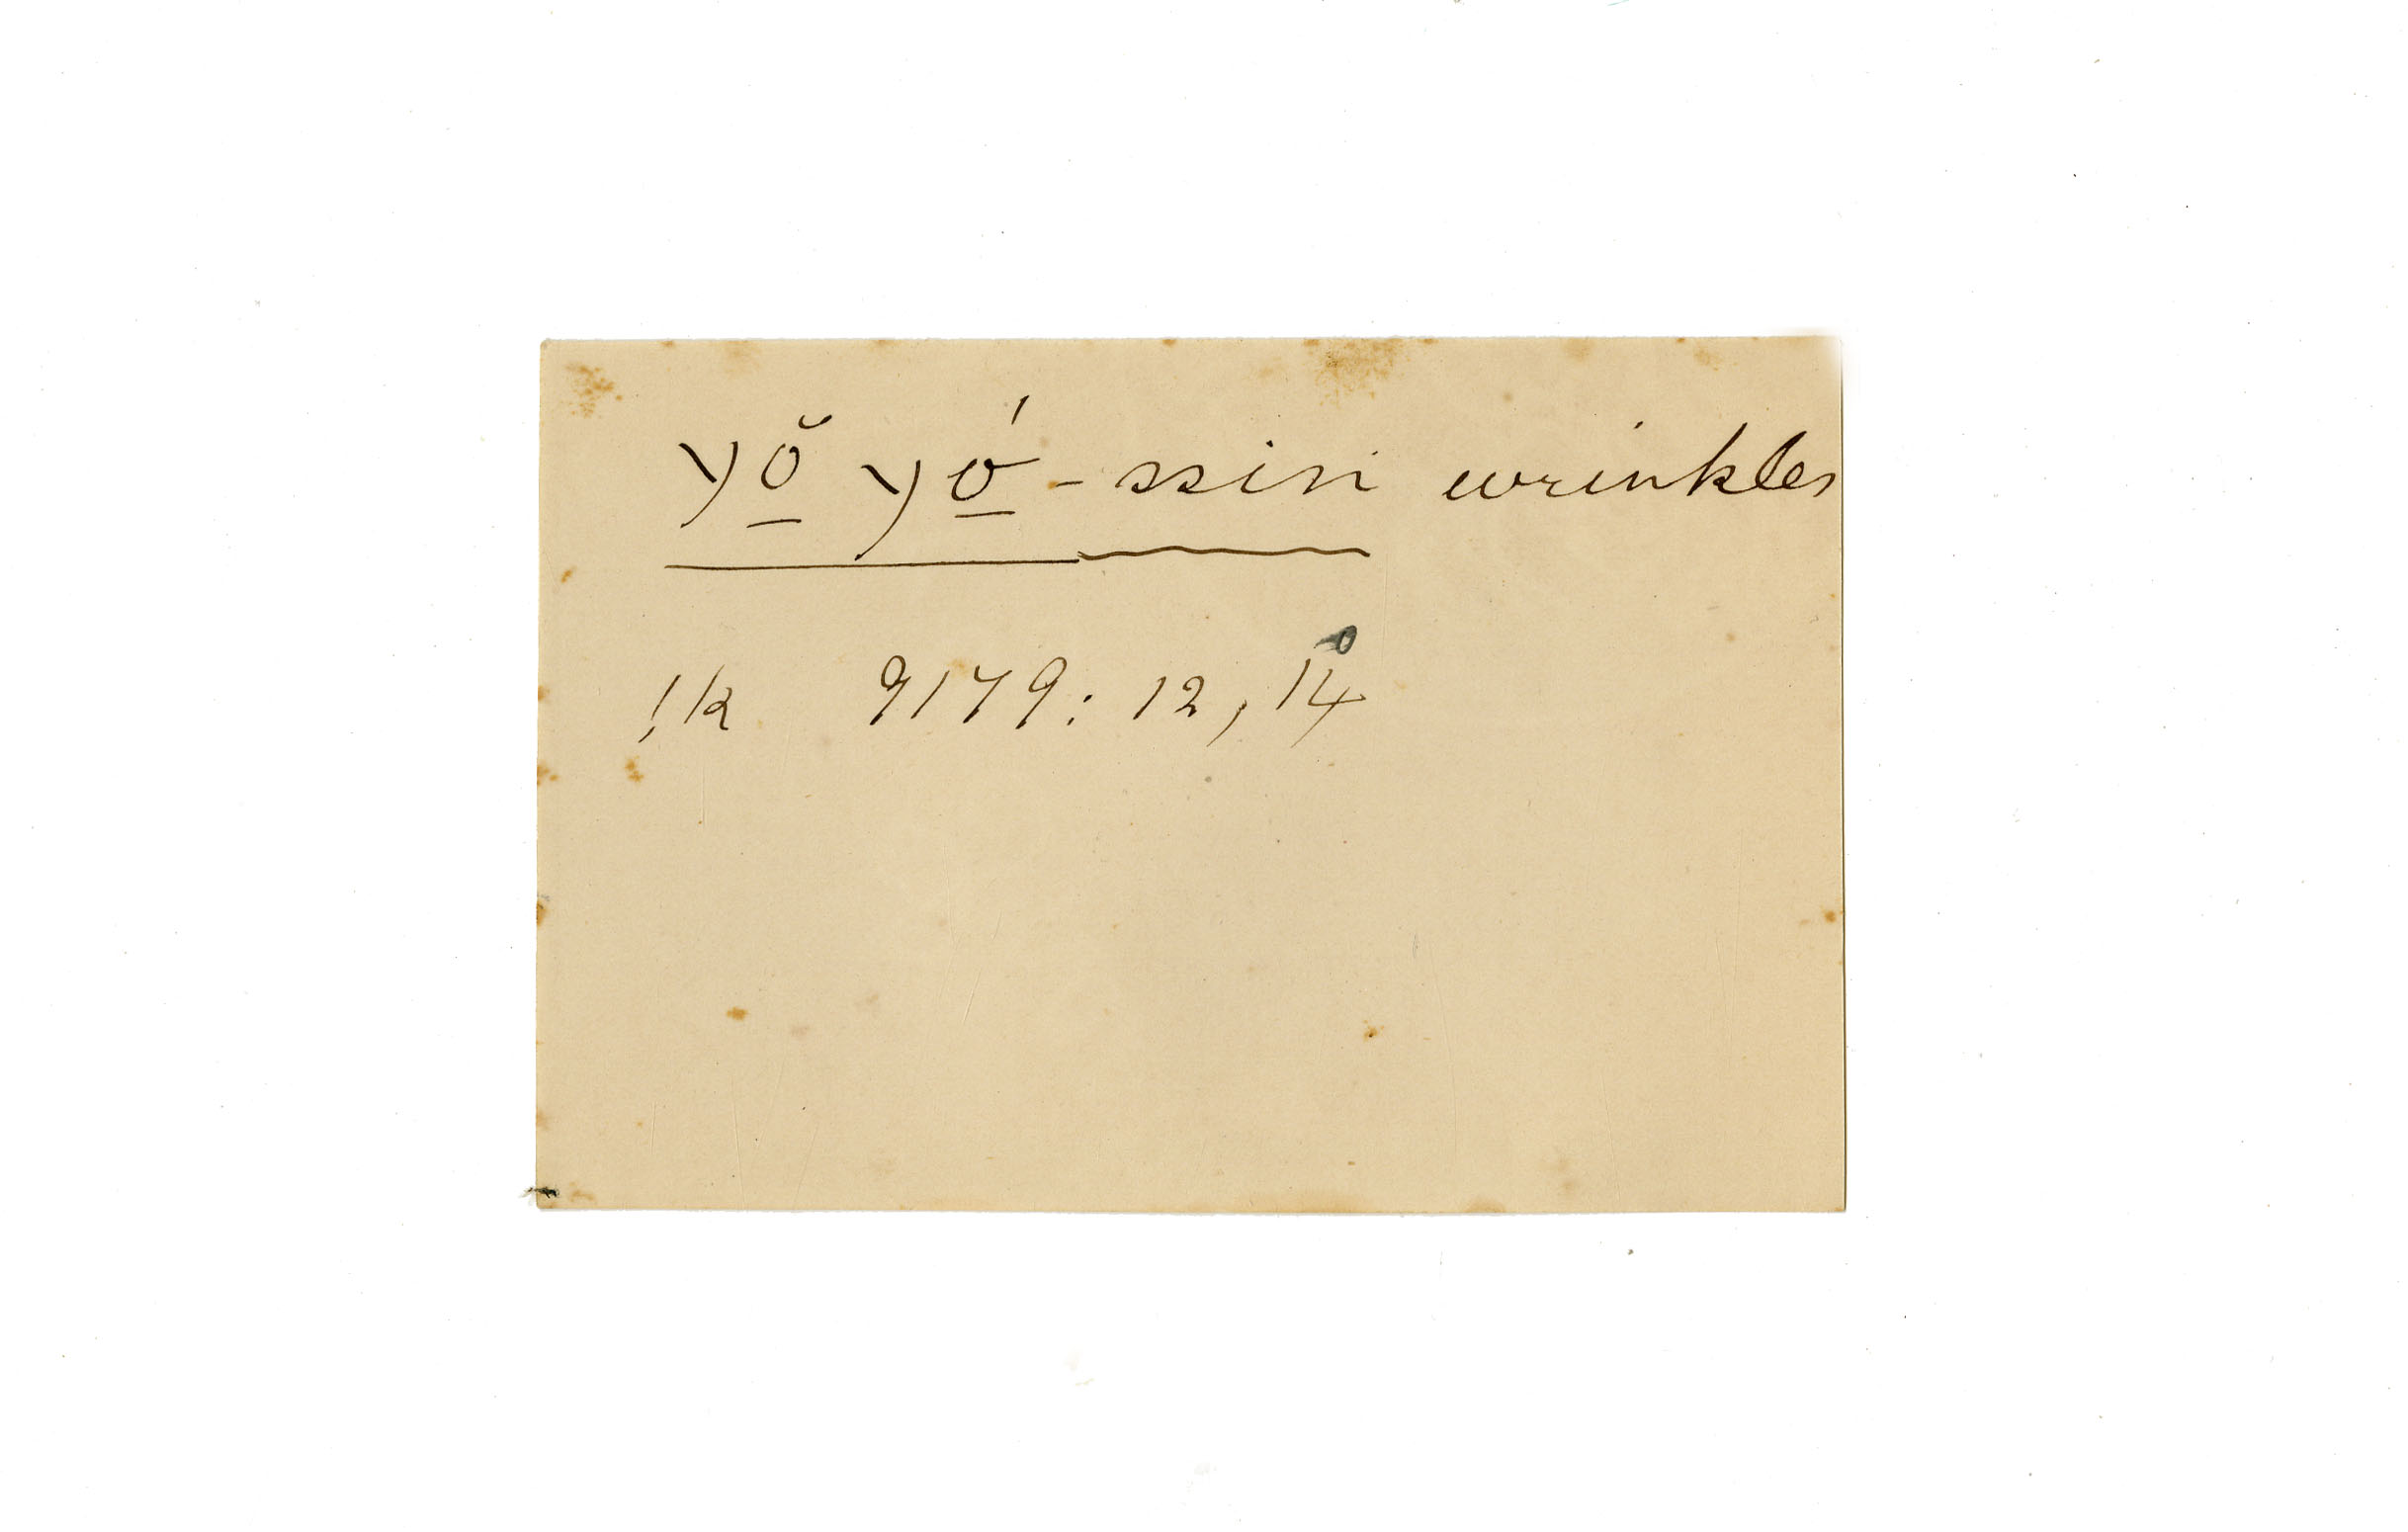 yŏ̱ yó̱-ssin wrinkles
!k 9179: 12, 14